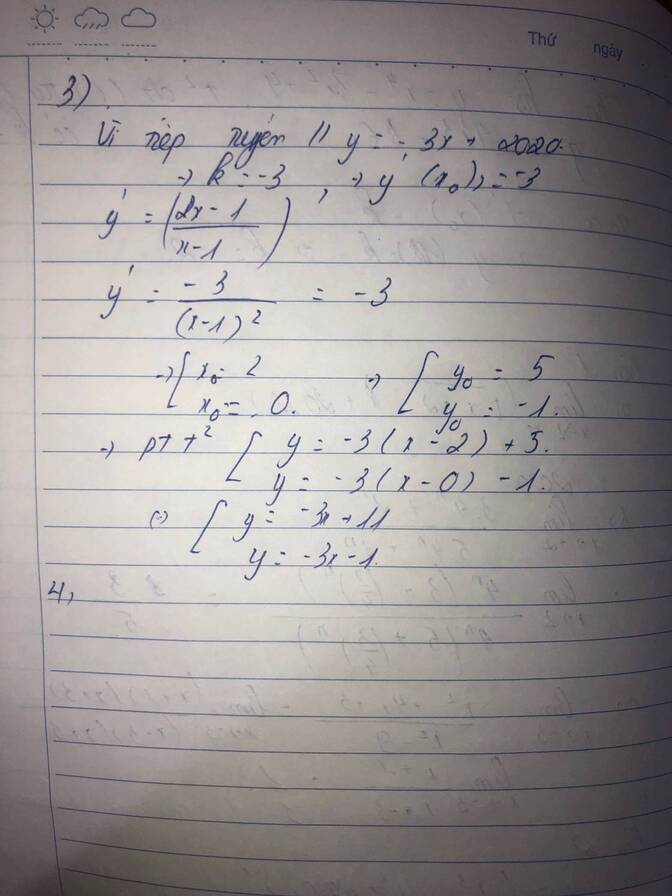 Thứ ngày
3)
Vì tiếp tuyến // y = - 3x + 2020.
→ k = -3 , → y' (x₀) = -3
y' = (2x - 1 / x - 1)'
y' = - 3 / (x-1)² = -3
→ [ x₀ = 2 → [ y₀ = 5
x₀ = 0. y₀ = -1.
→ ptt² [ y = -3(x-2) + 5.
y = -3(x-0) -1.
(-) [ y = -3x + 11
y = -3x - 1.
4,